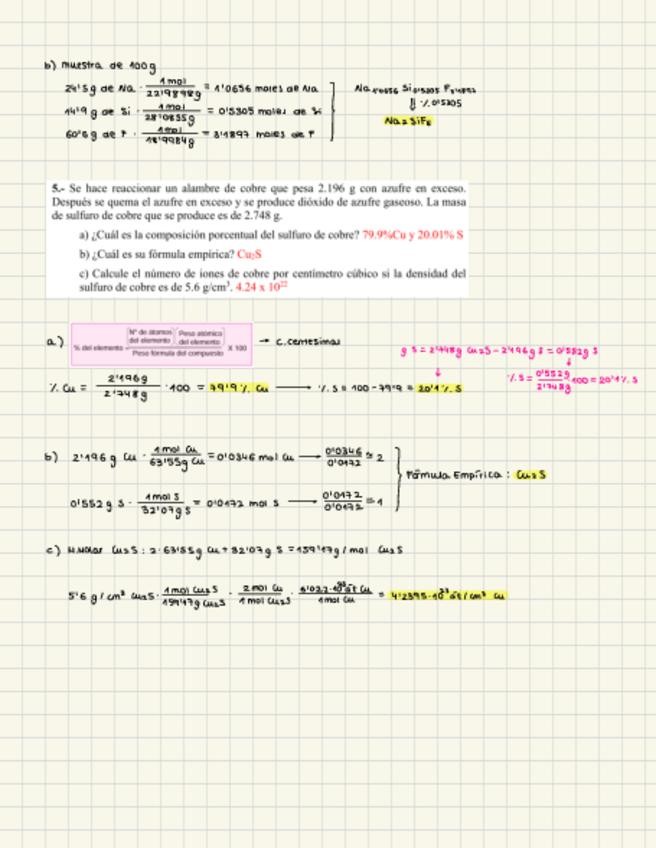 b) muestra de 100g
24'5g de Na · 1mol / 22'9898g = 1'0656 moles de Na
14'9 g de Si · 1mol / 28'0855g = 0'5305 moles de Si
60'6g de F · 1mol / 18'9984g = 3'1897 moles de F
Na1'0656 Si0'5305 F3'1897
⇓ % 0'5305
Na2SiF6
5.- Se hace reaccionar un alambre de cobre que pesa 2.196 g con azufre en exceso.
Después se quema el azufre en exceso y se produce dióxido de azufre gaseoso. La masa
de sulfuro de cobre que se produce es de 2.748 g.
a) ¿Cuál es la composición porcentual del sulfuro de cobre? 79.9%Cu y 20.01% S
b) ¿Cuál es su fórmula empírica? Cu2S
c) Calcule el número de iones de cobre por centímetro cúbico si la densidad del
sulfuro de cobre es de 5.6 g/cm³. 4.24 x 10²²
a) % del elemento = (Nº de átomos del elemento) (Peso atómico del elemento) / Peso fórmula del compuesto X 100 → c.centesimal
g S = 2'748g Cu2S - 2'196g S = 0'552g S
% Cu = 2'196g / 2'748g · 100 = 79'9% Cu → % S = 100 - 79'9 = 20'1% S
% S = 0'552g / 2'748g · 100 = 20'1% S
b) 2'196 g Cu · 1mol Cu / 63'55g Cu = 0'0346 mol Cu → 0'0346 / 0'0172 ≈ 2
Fórmula Empírica : Cu2S
0'552g S · 1mol S / 32'07g S = 0'0172 mol S → 0'0172 / 0'0172 = 1
c) M.Molar Cu2S : 2·63'55g Cu + 32'07g S = 159'17g/mol Cu2S
5'6 g/cm³ Cu2S · 1mol Cu2S / 159'17g Cu2S · 2mol Cu / 1mol Cu2S · 6'022·10²³ át Cu / 1mol Cu = 4'2395·10²² át/cm³ Cu